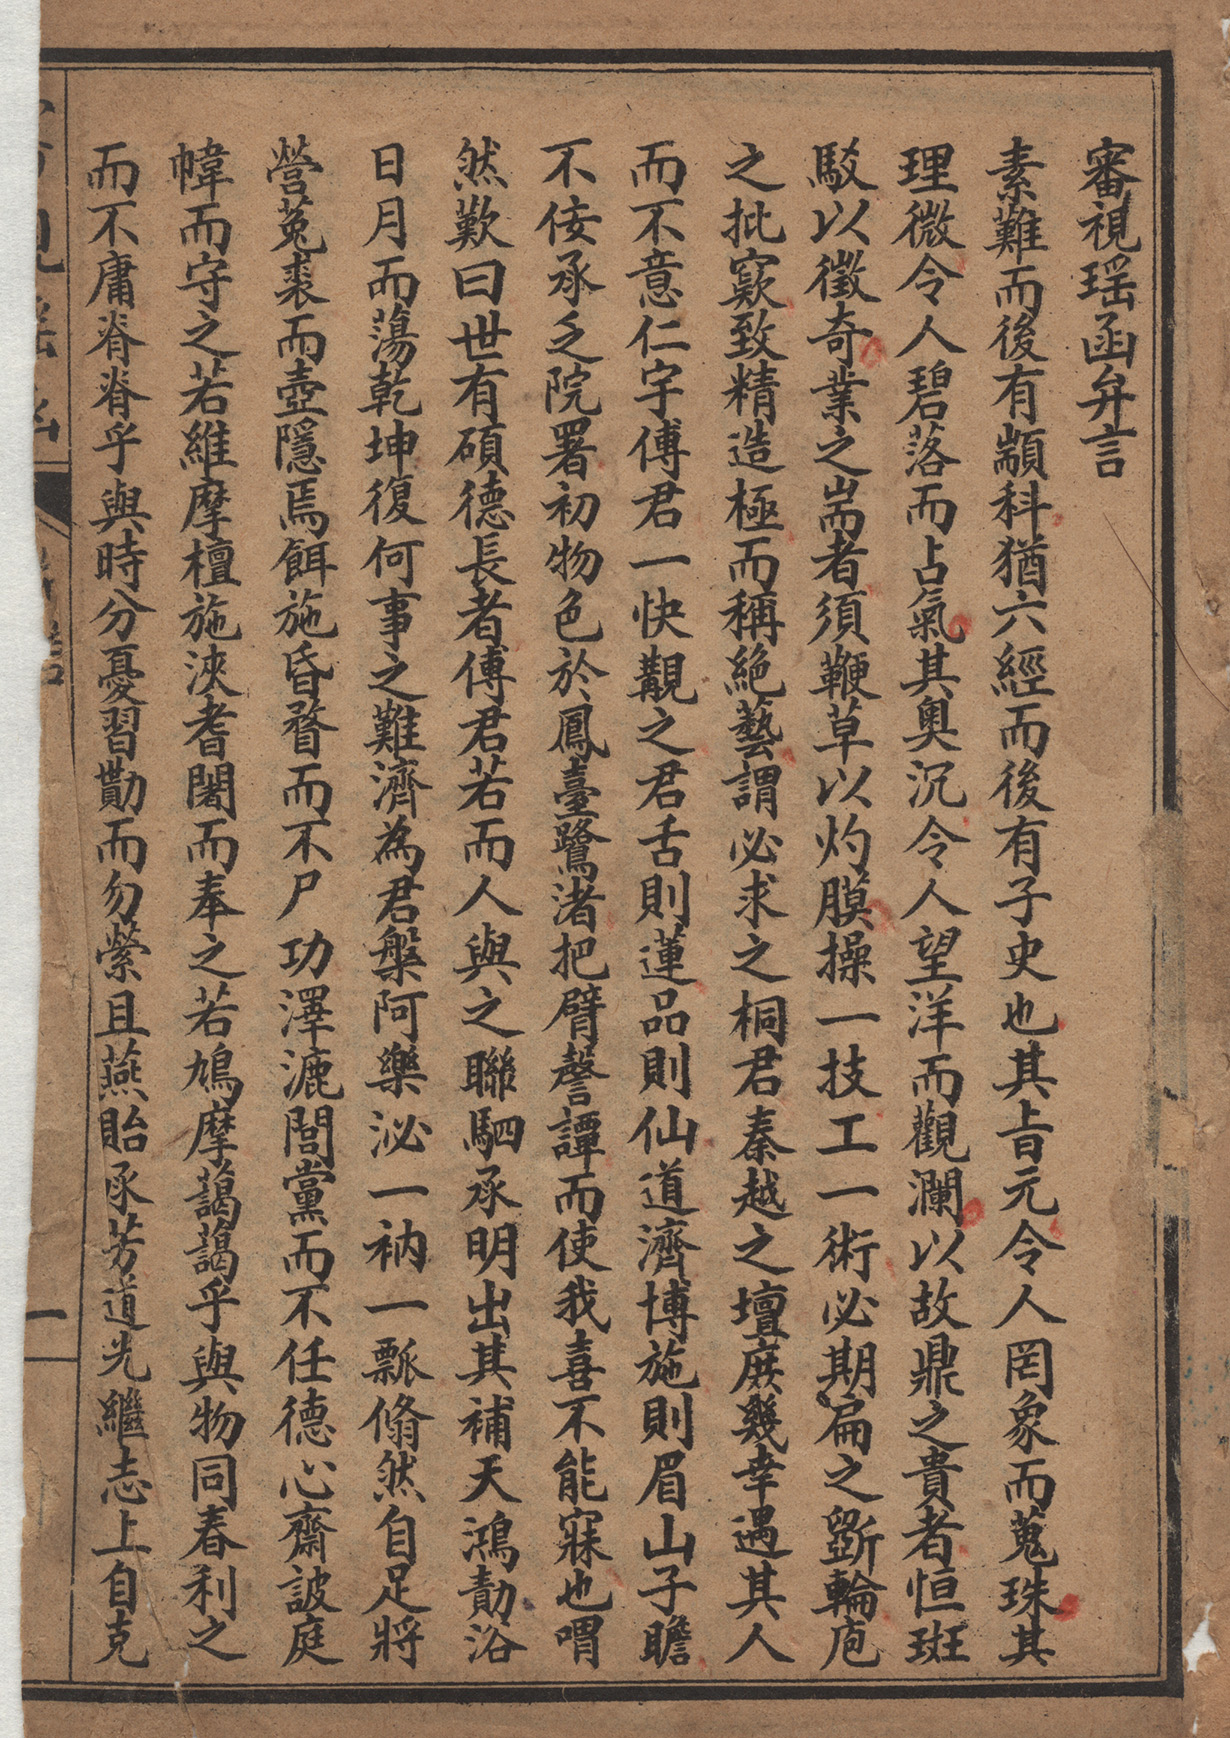 審視瑶函弁言
素難而後有顓科猶六經而後有子史也其旨元令人罔象而蒐珠其
理微令人碧落而占氣其奧沉令人望洋而觀瀾以故鼎之貴者恒斑
駁以徵奇業之耑者須鞭草以灼膜操一技工一術必期扁之斵輪庖
之批窾致精造極而稱絶藝謂必求之桐君秦越之壇庻幾幸遇其人
而不意仁宇傅君一快覩之君舌則蓮品則仙道濟博施則眉山子瞻
不佞承乏院署初物色於鳳臺鷺渚把臂謦譚而使我喜不能寐也喟
然歎曰世有碩德長者傅君若而人與之聯駟承明出其補天鴻勣浴
日月而蕩乾坤復何事之難濟為君槃阿樂泌一衲一瓢翛然自足將
營菟裘而壺隱焉餌施昏瞀而不尸功澤漉閭黨而不任德心齋詖庭
幃而守之若維摩檀施浹耆闍而奉之若鳩摩藹藹乎與物同春利之
而不庸脊脊乎與時分憂習勩而勿縈且燕貽承芳道光繼志上自克
審視瑶函
一